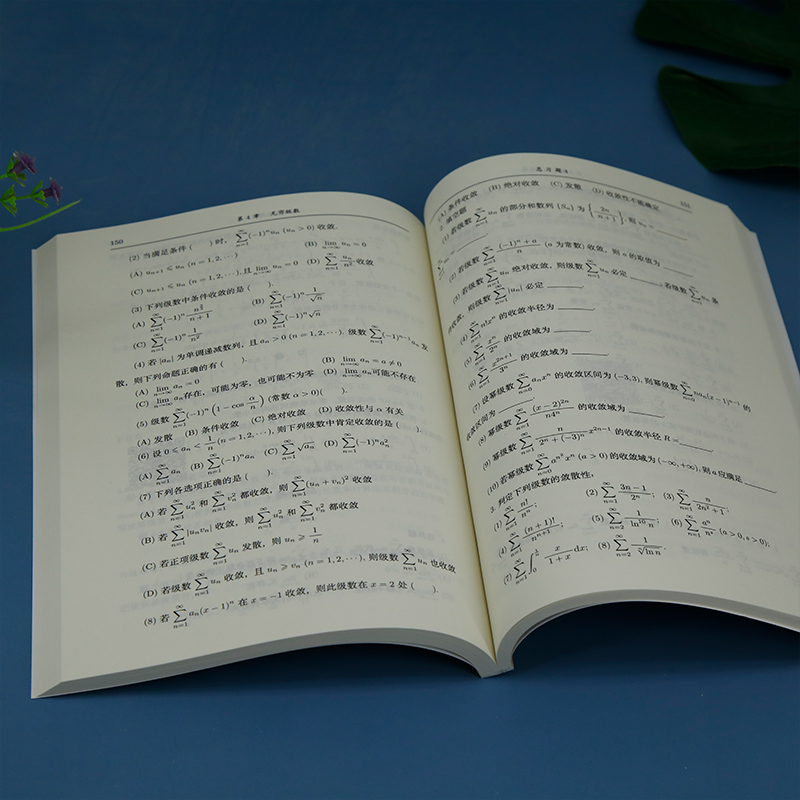 150 第 4 章 无穷级数
(2) 当满足条件 ( ) 时, $\sum_{n=1}^{\infty}(-1)^n u_n$ $(u_n > 0)$ 收敛.
(A) $u_{n+1} \leqslant u_n$ $(n=1,2,\cdots)$ (B) $\lim_{n\to\infty} u_n = 0$
(C) $u_{n+1} \leqslant u_n$ $(n=1,2,\cdots)$, 且 $\lim_{n\to\infty} u_n = 0$ (D) $\sum_{n=1}^{\infty} \frac{u_n}{n^2}$ 收敛
(3) 下列级数中条件收敛的是 ( ).
(A) $\sum_{n=1}^{\infty}(-1)^n$ (B) $\sum_{n=1}^{\infty}(-1)^n \frac{1}{\sqrt{n}}$
(C) $\sum_{n=1}^{\infty}(-1)^n \frac{1}{n^2}$ (D) $\sum_{n=1}^{\infty}(-1)^n \sqrt{n}$
(4) 若 $|a_n|$ 为单调递减数列, 且 $a_n > 0$ $(n=1,2,\cdots)$. 级数 $\sum_{n=1}^{\infty}(-1)^{n-1} a_n$ 发
散, 则下列命题正确的有 ( ).
(A) $\lim_{n\to\infty} a_n = 0$ (B) $\lim_{n\to\infty} a_n = a \neq 0$
(C) $\lim_{n\to\infty} a_n$ 存在, 可能为零, 也可能不为零 (D) $\lim_{n\to\infty} a_n$ 可能不存在
(5) 级数 $\sum_{n=1}^{\infty}(-1)^n \left(1-\cos\frac{\alpha}{n}\right)$ (常数 $\alpha > 0$)( ).
(A) 发散 (B) 条件收敛 (C) 绝对收敛 (D) 收敛性与 $\alpha$ 有关
(6) 设 $0 \leqslant a_n \leqslant \frac{1}{n}$ $(n=1,2,\cdots)$, 则下列级数中肯定收敛的是 ( ).
(A) $\sum_{n=1}^{\infty} a_n$ (B) $\sum_{n=1}^{\infty}(-1)^n a_n$ (C) $\sum_{n=1}^{\infty} \sqrt{a_n}$ (D) $\sum_{n=1}^{\infty}(-1)^n a_n^2$
(7) 下列各选项正确的是 ( ).
(A) 若 $\sum_{n=1}^{\infty} u_n^2$ 和 $\sum_{n=1}^{\infty} v_n^2$ 都收敛, 则 $\sum_{n=1}^{\infty}(u_n+v_n)^2$ 收敛
(B) 若 $\sum_{n=1}^{\infty} |u_n v_n|$ 收敛, 则 $\sum_{n=1}^{\infty} u_n^2$ 和 $\sum_{n=1}^{\infty} v_n^2$ 都收敛
(C) 若正项级数 $\sum_{n=1}^{\infty} u_n$ 发散, 则 $u_n \geqslant \frac{1}{n}$
(D) 若级数 $\sum_{n=1}^{\infty} u_n$ 收敛, 且 $u_n \geqslant v_n$ $(n=1,2,\cdots)$, 则级数 $\sum_{n=1}^{\infty} v_n$ 也收敛
(8) 若 $\sum_{n=1}^{\infty} a_n(x-1)^n$ 在 $x=-1$ 收敛, 则此级数在 $x=2$ 处 ( ).
总习题 4 151
(A) 条件收敛 (B) 绝对收敛 (C) 发散 (D) 收敛性不能确定
2. 填空题
(1) 若级数 $\sum_{n=1}^{\infty} u_n$ 的部分和数列 $\{S_n\}$ 为 $\left\{\frac{2n}{n+1}\right\}$, 则 $u_n=$
(2) 若级数 $\sum_{n=1}^{\infty} \frac{(-1)^n+a}{n}$ ($a$ 为常数) 收敛, 则 $a$ 的取值为
(3) 若级数 $\sum_{n=1}^{\infty} u_n$ 绝对收敛, 则级数 $\sum_{n=1}^{\infty} u_n$ 必定 ; 若级数 $\sum_{n=1}^{\infty} u_n$ 条
件收敛, 则级数 $\sum_{n=1}^{\infty} |u_n|$ 必定
(4) $\sum_{n=1}^{\infty} n! x^n$ 的收敛半径为
(5) $\sum_{n=1}^{\infty} \frac{x^n}{2^n}$ 的收敛域为
(6) $\sum_{n=1}^{\infty} \frac{x^{2n+1}}{3^n}$ 的收敛域为
(7) 设幂级数 $\sum_{n=0}^{\infty} a_n x^n$ 的收敛区间为 $(-3,3)$, 则幂级数 $\sum_{n=0}^{\infty} n a_n(x-1)^{n-1}$ 的
收敛区间为
(8) 幂级数 $\sum_{n=1}^{\infty} \frac{(x-2)^{2n}}{n4^n}$ 的收敛域为
(9) 幂级数 $\sum_{n=1}^{\infty} \frac{n}{2^n+(-3)^n} x^{2n-1}$ 的收敛半径 $R=$
(10) 若幂级数 $\sum_{n=0}^{\infty} a^{n^2} x^n$ $(a>0)$ 的收敛域为 $(-\infty,+\infty)$, 则 $a$ 应满足
3. 判定下列级数的敛散性:
(1) $\sum_{n=1}^{\infty} \frac{n!}{n^n}$; (2) $\sum_{n=1}^{\infty} \frac{3n-1}{2^n}$; (3) $\sum_{n=1}^{\infty} \frac{n}{2n^2+1}$;
(4) $\sum_{n=1}^{\infty} \frac{(n+1)!}{n^{n+1}}$; (5) $\sum_{n=2}^{\infty} \frac{1}{\ln^{10} n}$; (6) $\sum_{n=1}^{\infty} \frac{a^n}{n^s}$ $(a>0,s>0)$;
(7) $\sum_{n=1}^{\infty} \int_0^{\frac{1}{n}} \frac{x}{1+x}\,dx$; (8) $\sum_{n=2}^{\infty} \frac{1}{\sqrt[n]{\ln n}}$.